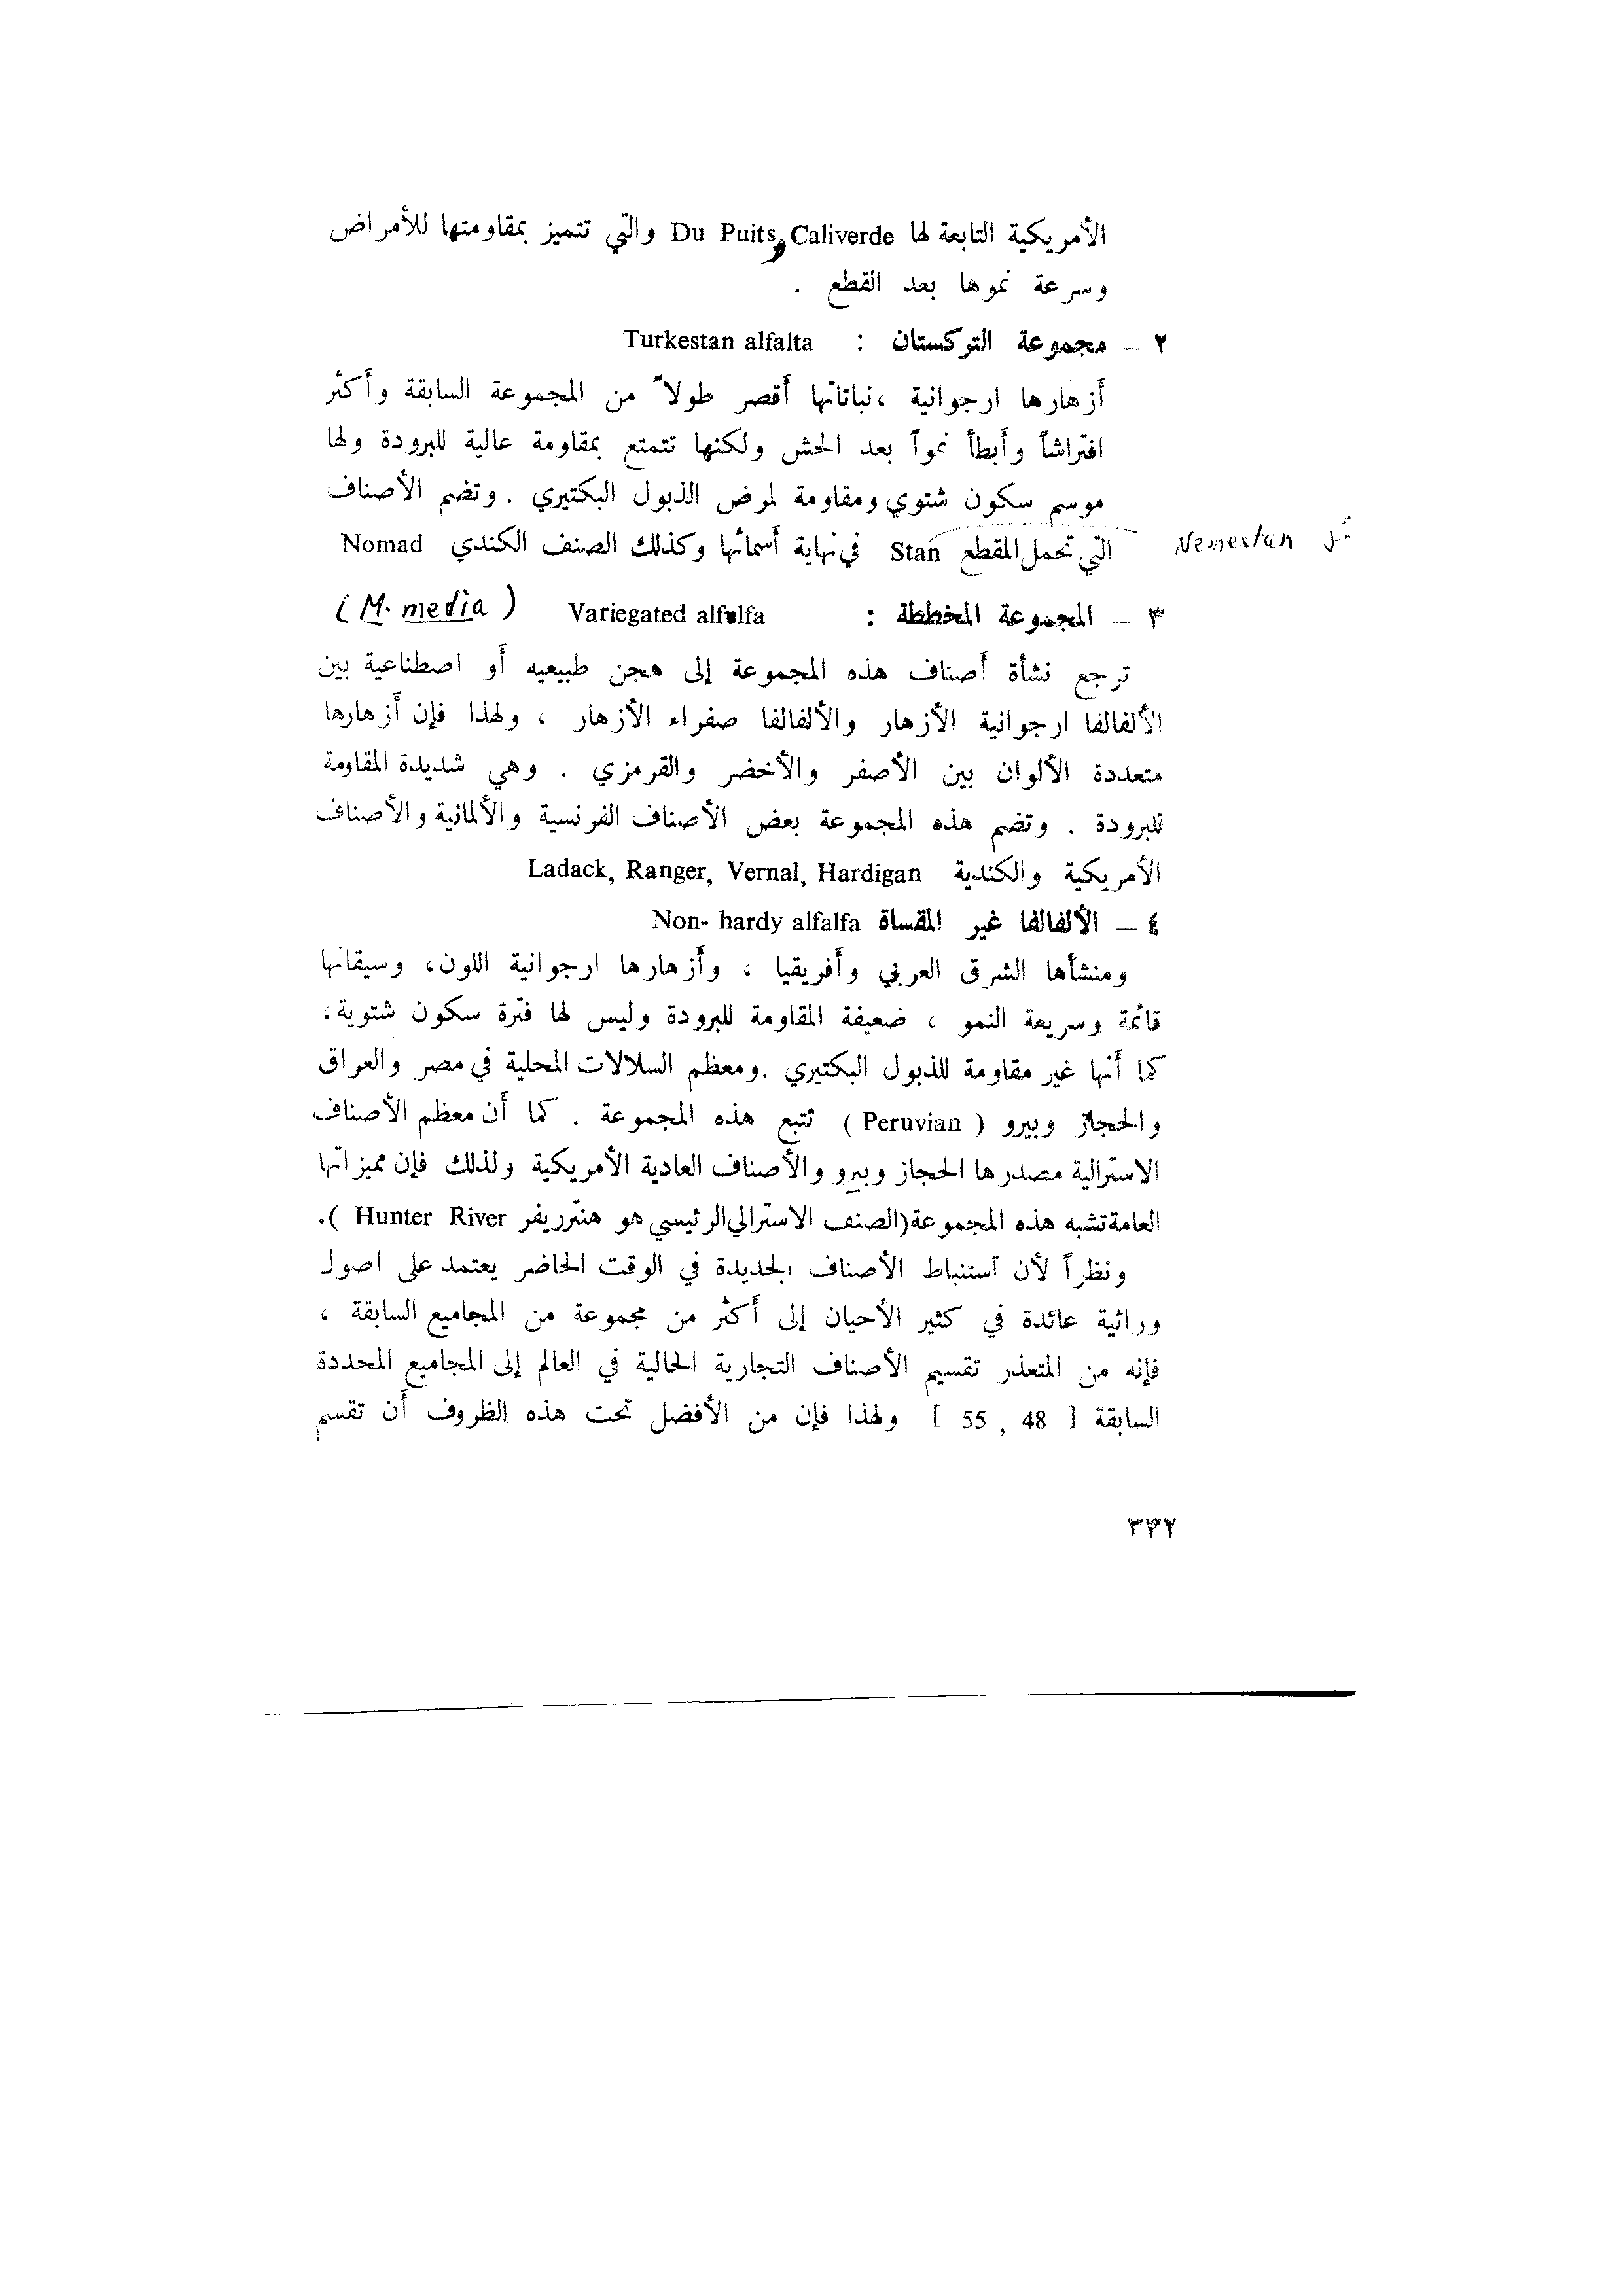 الأمريكية التابعة لها Du Puits و Caliverde والتي تتميز بمقاومتها للأمراض
وسرعة نموها بعد القطع .
٢ — مجموعة التركستان : Turkestan alfalta
أزهارها ارجوانية ،نباتاتها أقصر طولاً من المجموعة السابقة وأكثر
افتراشاً وأبطأ نمواً بعد الحش ولكنها تتمتع بمقاومة عالية للبرودة ولها
موسم سكون شتوي ومقاومة لمرض الذبول البكتيري . وتضم الأصناف
التي تحمل المقطع Stan في نهاية أسمائها وكذلك الصنف الكندي Nomad
مثل Nemestan
٣ — المجموعة المخططة : Variegated alfalfa (M. media)
ترجع نشأة أصناف هذه المجموعة إلى هجن طبيعيه أو اصطناعية بين
الألفالفا ارجوانية الأزهار والألفالفا صفراء الأزهار ، ولهذا فإن أزهارها
متعددة الألوان بين الأصفر والأخضر والقرمزي . وهي شديدة المقاومة
للبرودة . وتضم هذه المجموعة بعض الأصناف الفرنسية والألمانية والأصناف
الأمريكية والكندية Ladack, Ranger, Vernal, Hardigan
٤ — الألفالفا غير المقساة Non- hardy alfalfa
ومنشأها الشرق العربي وأفريقيا ، وأزهارها ارجوانية اللون، وسيقانها
قائمة وسريعة النمو ، ضعيفة المقاومة للبرودة وليس لها فترة سكون شتوية،
كما أنها غير مقاومة للذبول البكتيري .ومعظم السلالات المحلية في مصر والعراق
والحجاز وبيرو ( Peruvian ) تتبع هذه المجموعة . كما أن معظم الأصناف
الاسترالية مصدرها الحجاز وبيرو والأصناف العادية الأمريكية ولذلك فإن مميزاتها
العامة تشبه هذه المجموعة (الصنف الاسترالي الرئيسي هو هنترريفر Hunter River ).
ونظراً لأن استنباط الأصناف الجديدة في الوقت الحاضر يعتمد على اصول
وراثية عائدة في كثير الأحيان إلى أكثر من مجموعة من المجاميع السابقة ،
فإنه من المتعذر تقسيم الأصناف التجارية الحالية في العالم إلى المجاميع المحددة
السابقة [ 48 , 55 ] ولهذا فإن من الأفضل تحت هذه الظروف أن تقسم